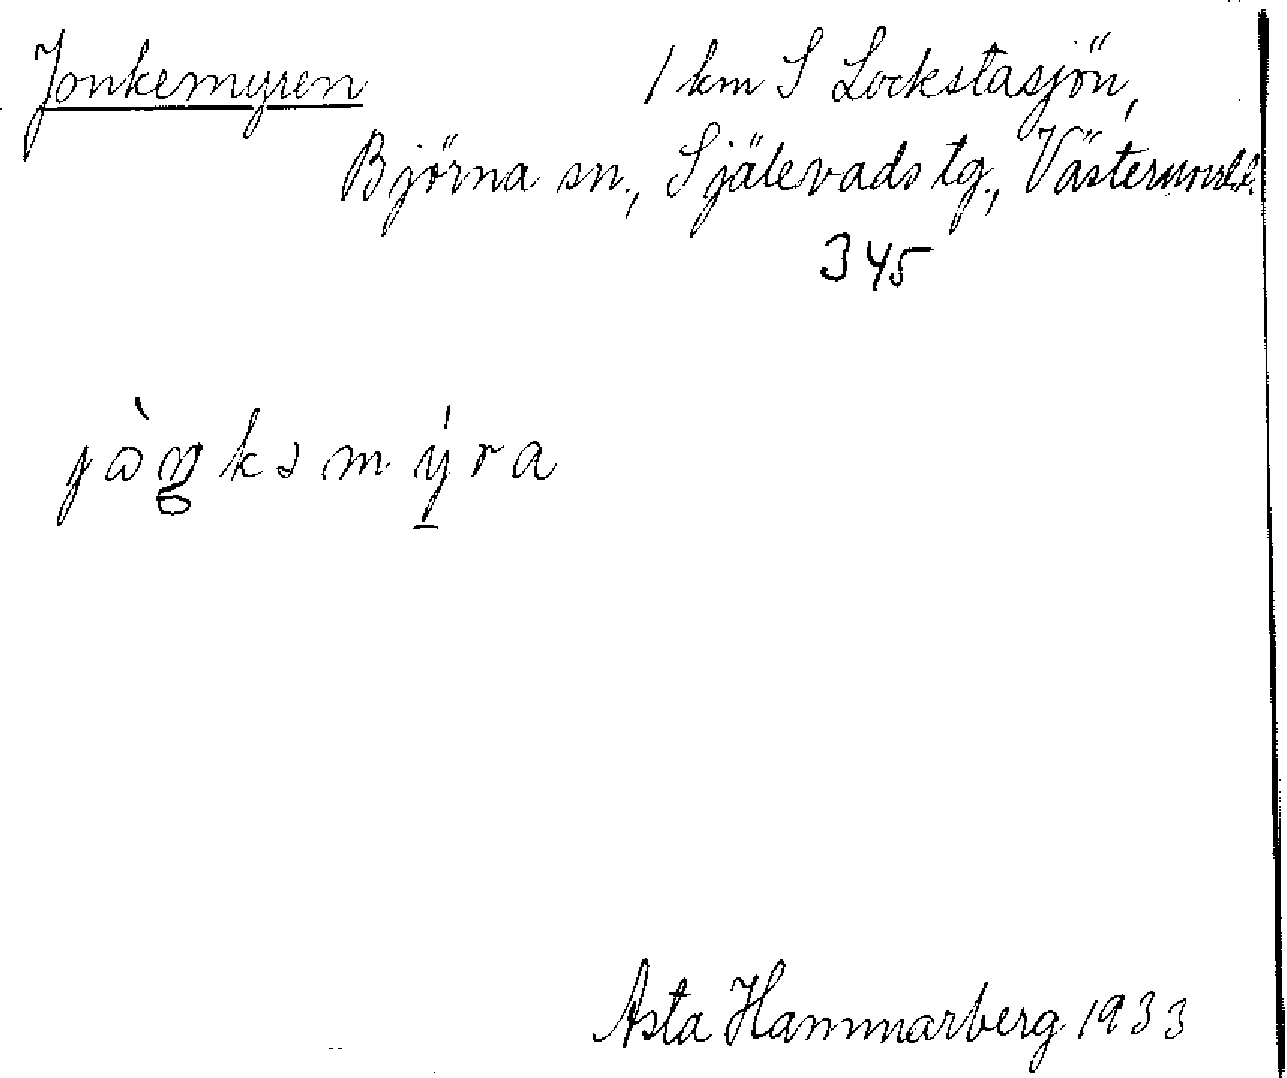 Jonkemyren 1 km S Lockstasjön,
Björna sn., Själevads tg., Västernorrl. l.
345
jàŋkəmýra
Asta Hammarberg 1933